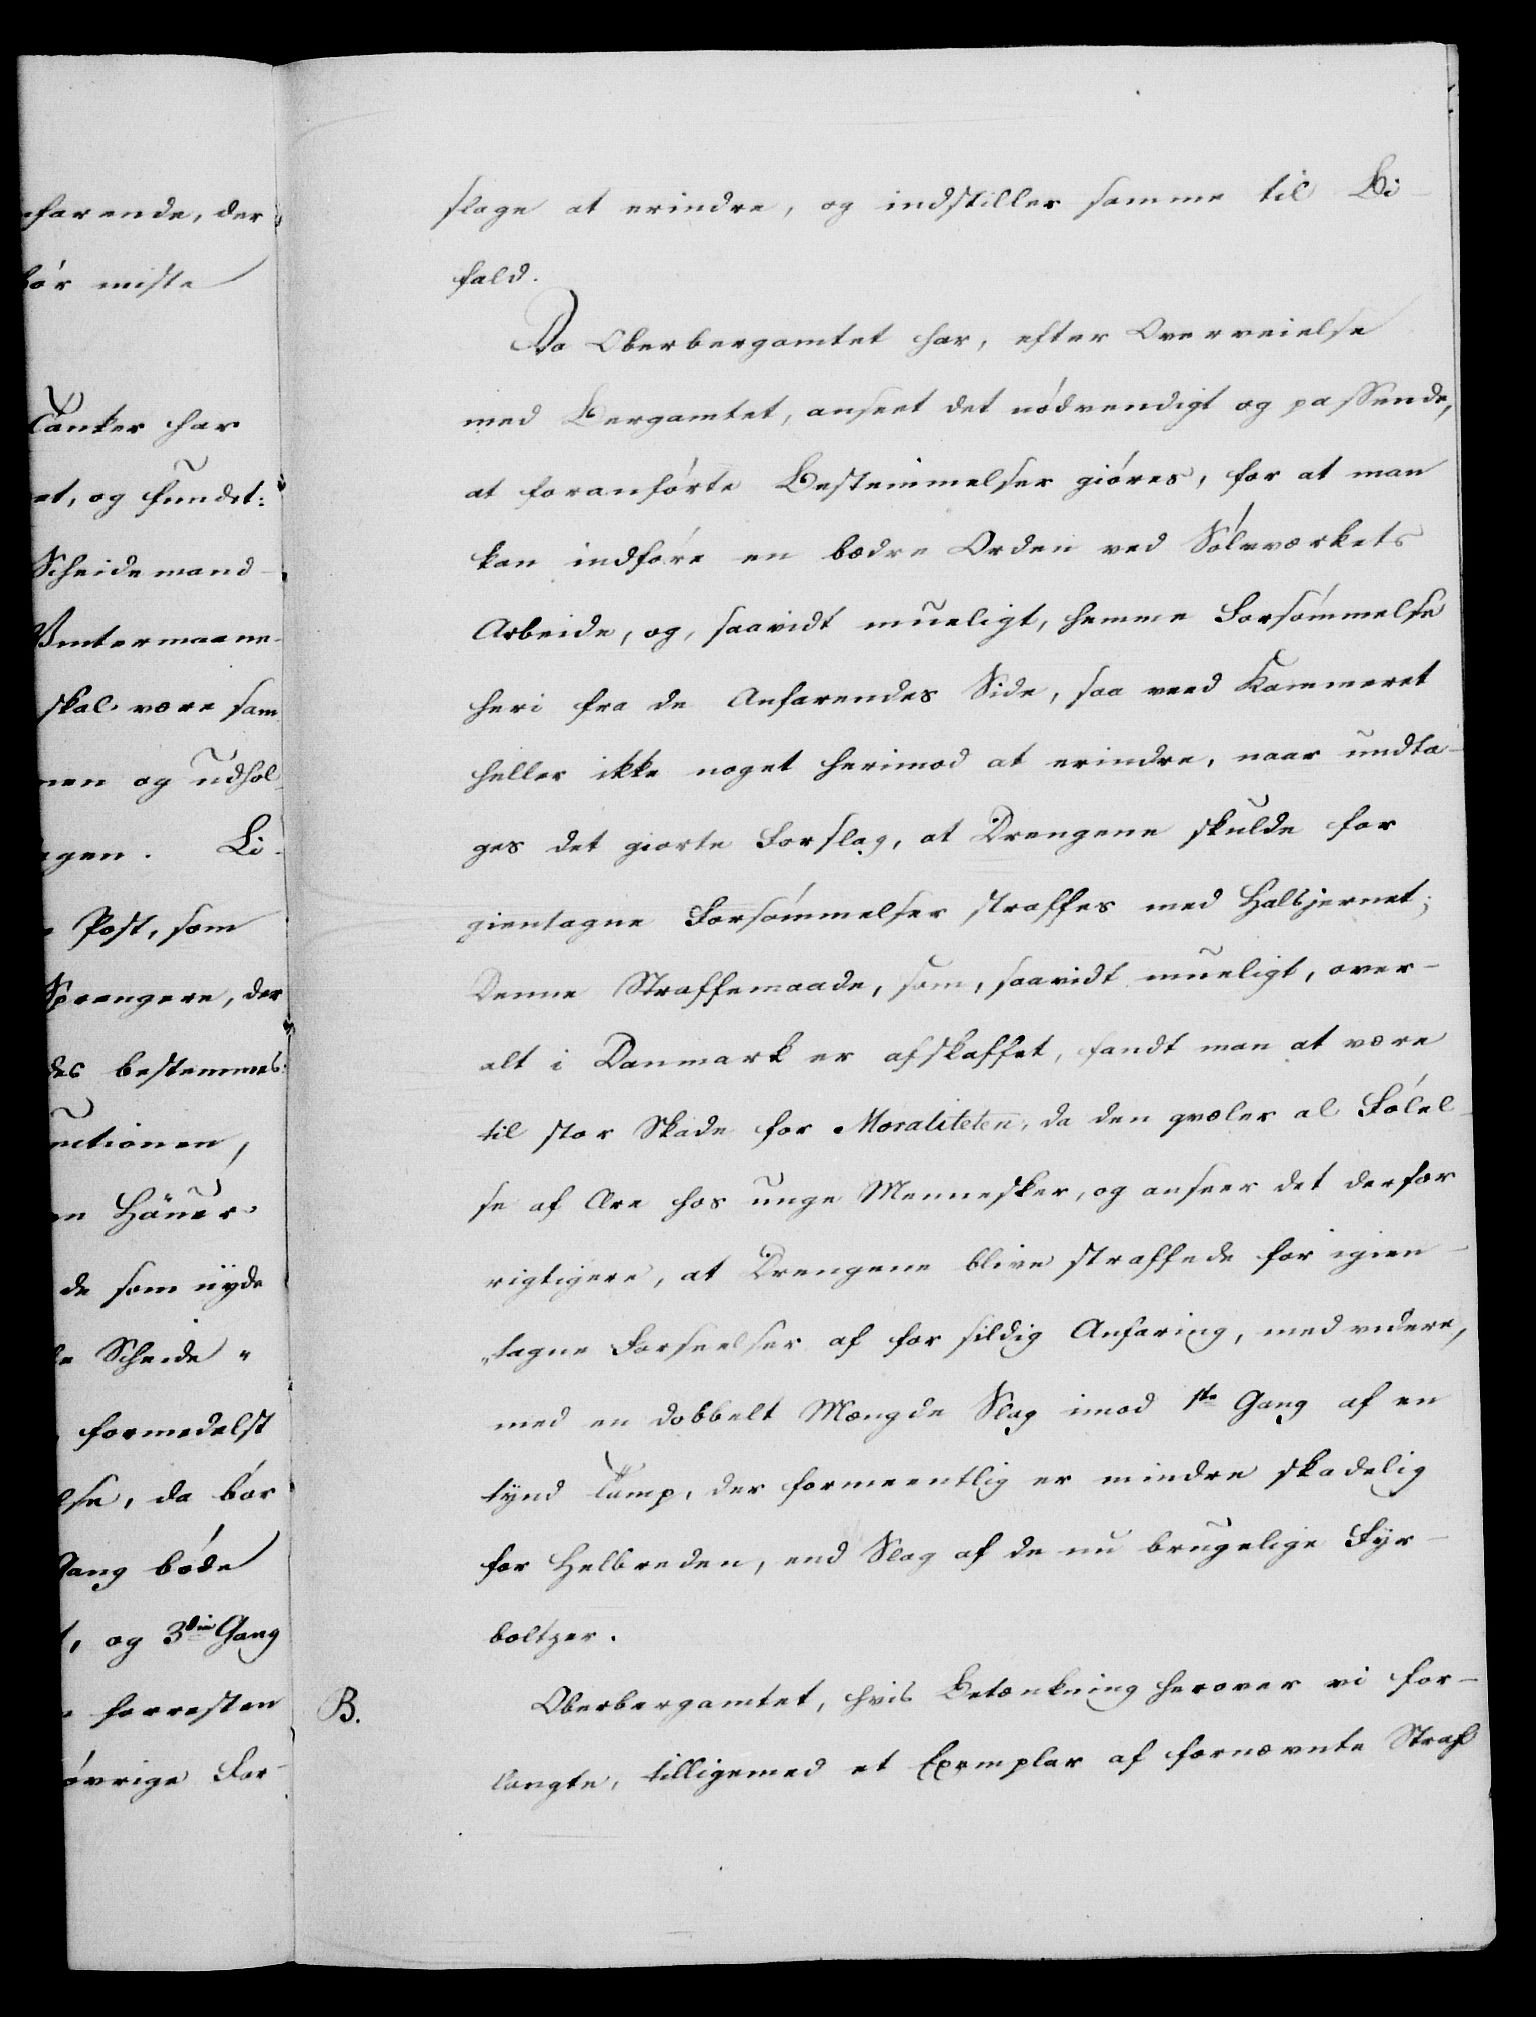 farende, der
bör miste
Tanker har
et, og fundet:
Scheidemand-
Vintermaane-
skal være sam
men og udhol-
gen. Li-
Post, som
Sprengere, der
des bestemmes:
nctionen,
en Häuer
de som nyde
Scheide "
formedelst
lse, da bör
Gang böde
, og 3die Gang
forresten
övrige For-
slage at erindre, og indstiller samme til Bi-
fald.
Da Oberbergamtet har, efter Overveielse
med Bergamtet, anseet det nödvendigt og passende,
at foranförte Bestemmelser giöres, for at man
kan indföre en bedre Orden ved Sölvværkets
Arbeide, og, saavidt mueligt, hemme Forsömmelse
heri fra de Anfarendes Side, saa veed Kammeret
heller ikke noget herimod at erindre, naar undta-
ges det giorte Forslag, at Drengene skulde for
gientagne Forsömmelser straffes med Halsjernet;
Denne Straffemaade, som, saavidt mueligt, over-
alt i Danmark er afskaffet, fandt man at være
til stor Skade for Moraliteten, da den qvæler al Fölel-
se af Ære hos unge Mennesker, og anseer det derfor
rigtigere, at Drengene blive straffede for igien-
„tagne Forseelser af for sildig Anfaring, med videre,
med en dobbelt Mængde Slag imod 1ste Gang af en
tynd Tamp, der formeentlig er mindre skadelig
for Helbreden, end Slag af de nu brugelige Fyr-
boltzer.
B. Oberbergamtet, hvis Betænkning herover vi for-
langte, tilligemed et Exemplar af fornævnte Straf